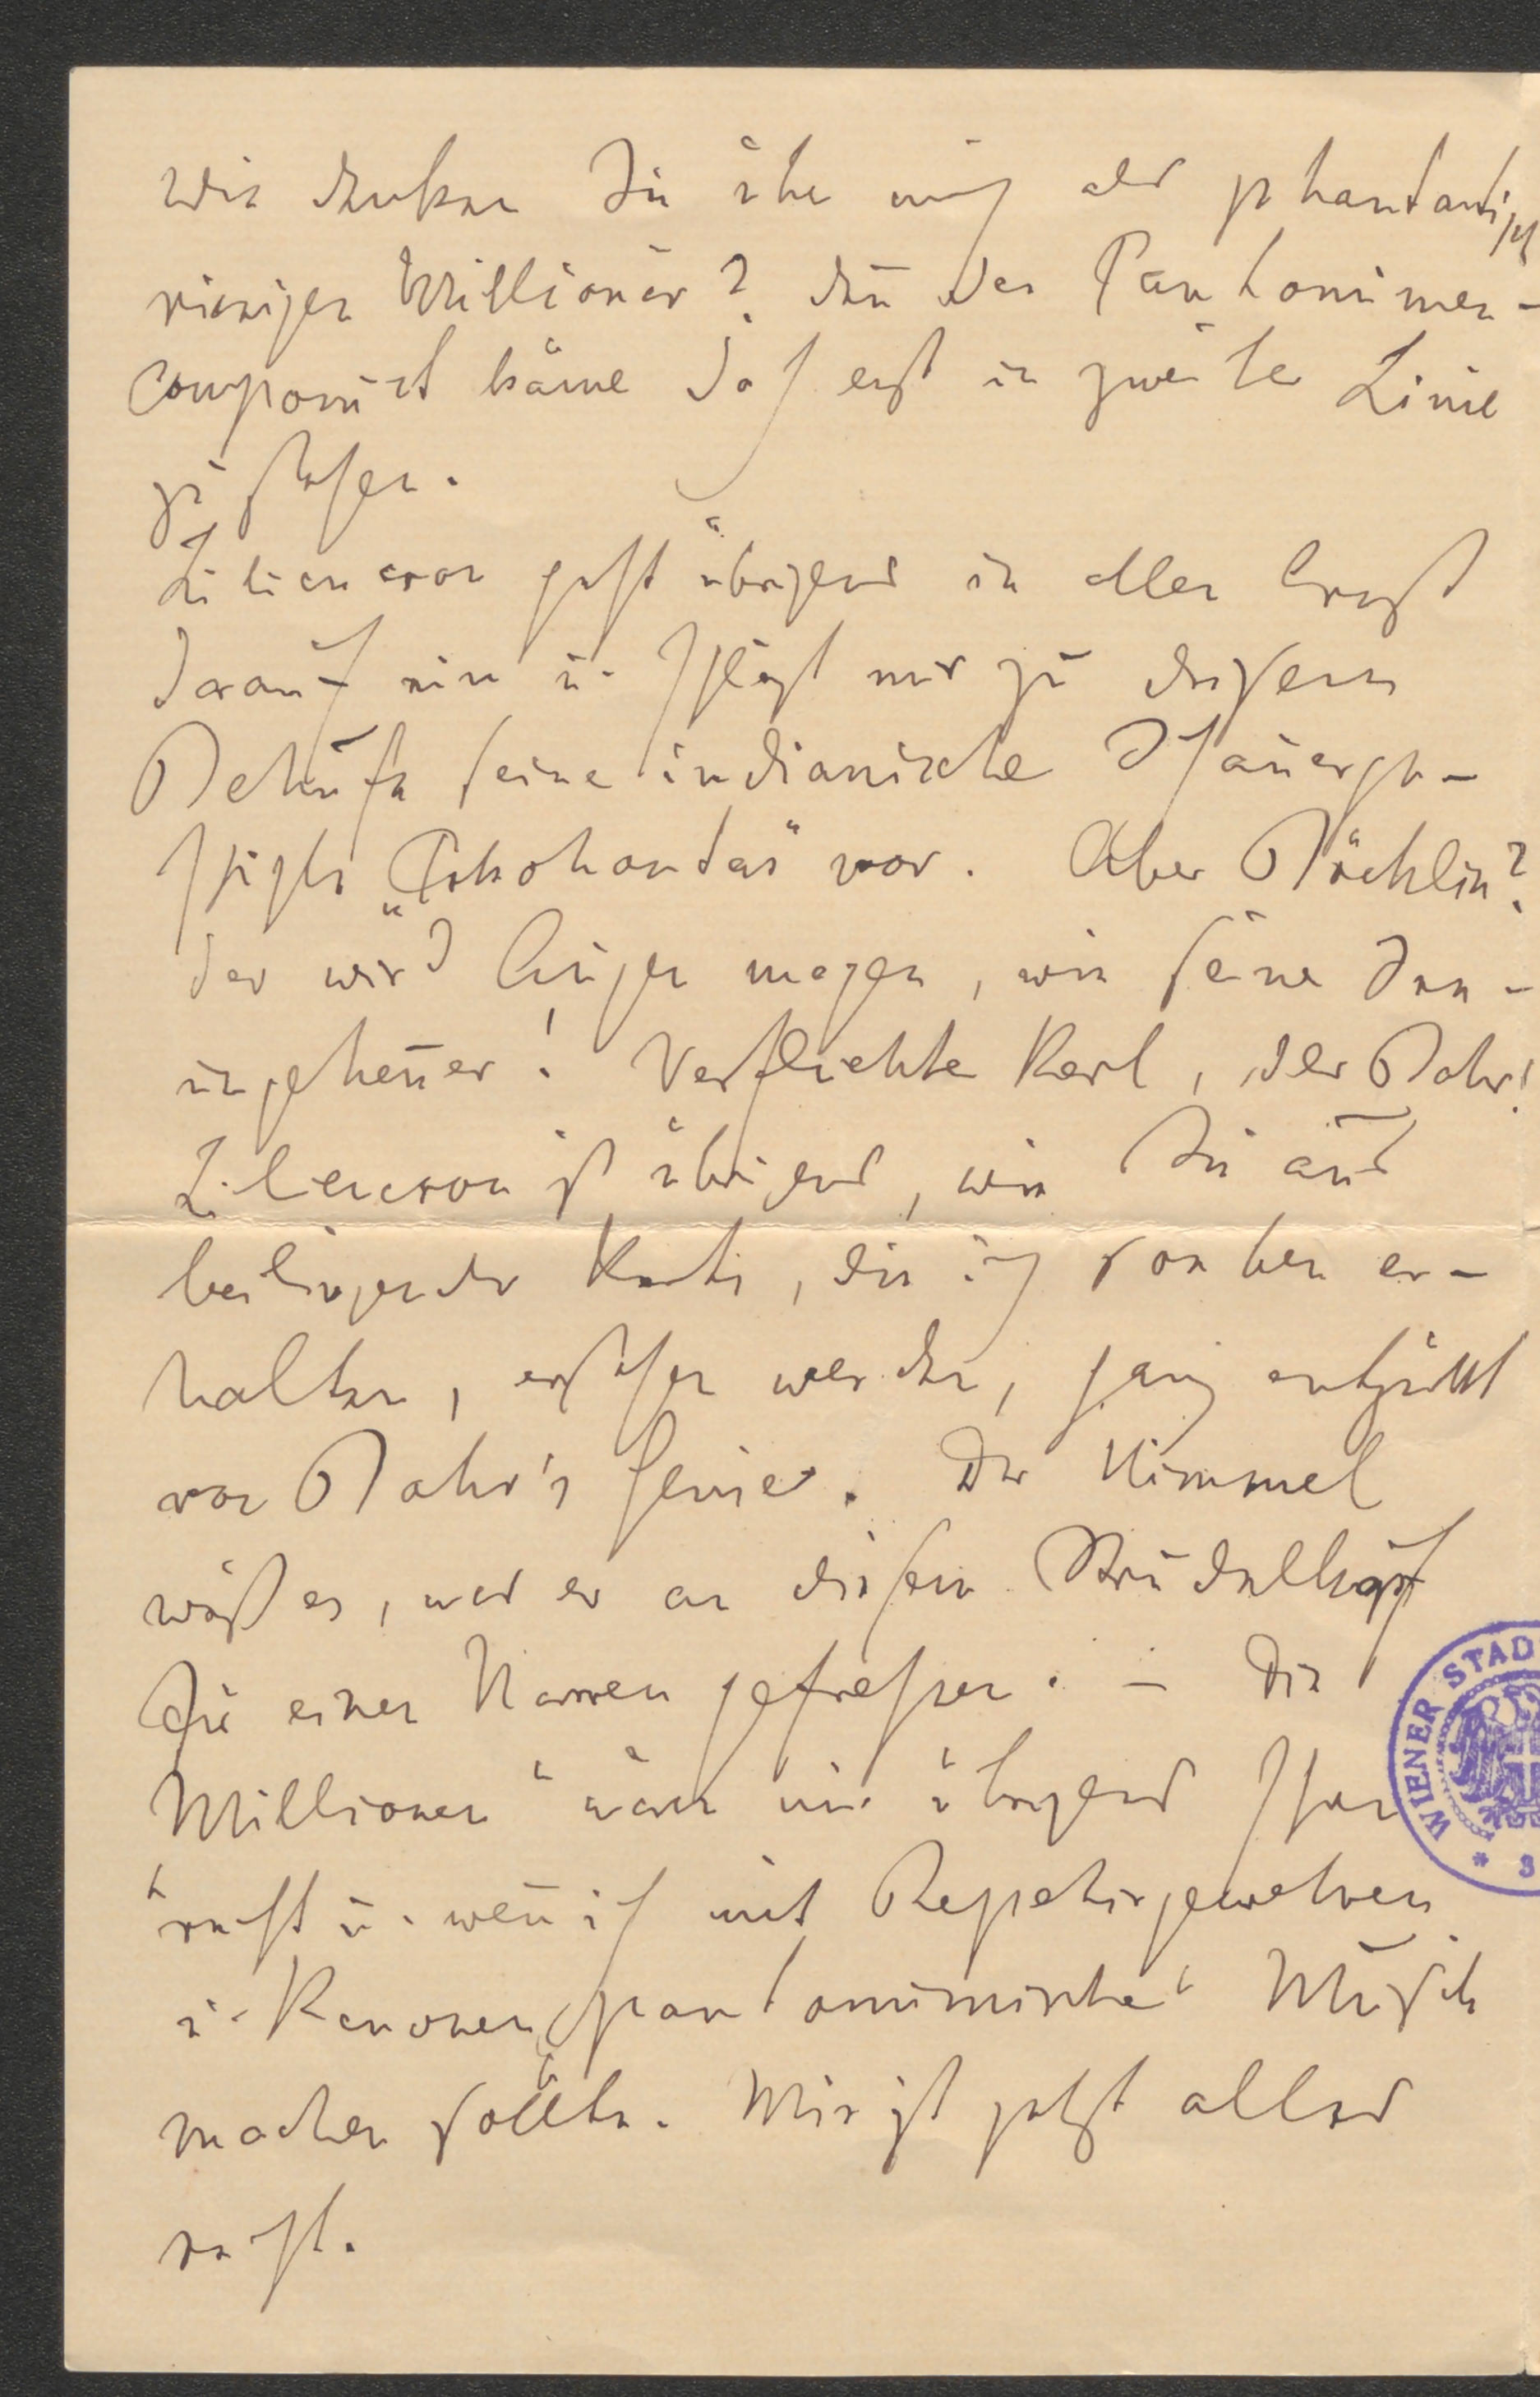 Wie denken Sie über mich als phantastisch
rießigen Millionär? Den̄ der Pantomimen-
componist käme doch erst in zweiter Linie
zu stehen.
Liliencron geht übrigens in allem Ernst
darauf ein u. schlägt mir zu diesem
Behufe seine indianische Schauerge-
schichte „Pokahontas“ vor. Aber Böcklin?
der wird Augen machen, wie seine See-
ungeheuer! Verfluchter Kerl, der Bahr!
Liliencron ist übrigens, wie Sie aus
beiliegender Karte, die ich soeben er-
halten, ersehen werden, ganz entzückt
von Bahr's Genie. Der Himmel
weiß es, was er an diesem Strudelkopf
für einen Narren gefressen. – Die
Millionen wären mir übrigens schon
recht u. wen̄ ich mit Repetirgewehren
u. Kanonen pantomimische Musik
machen sollte. Mir ist jetzt alles
recht.
WIENER STAD